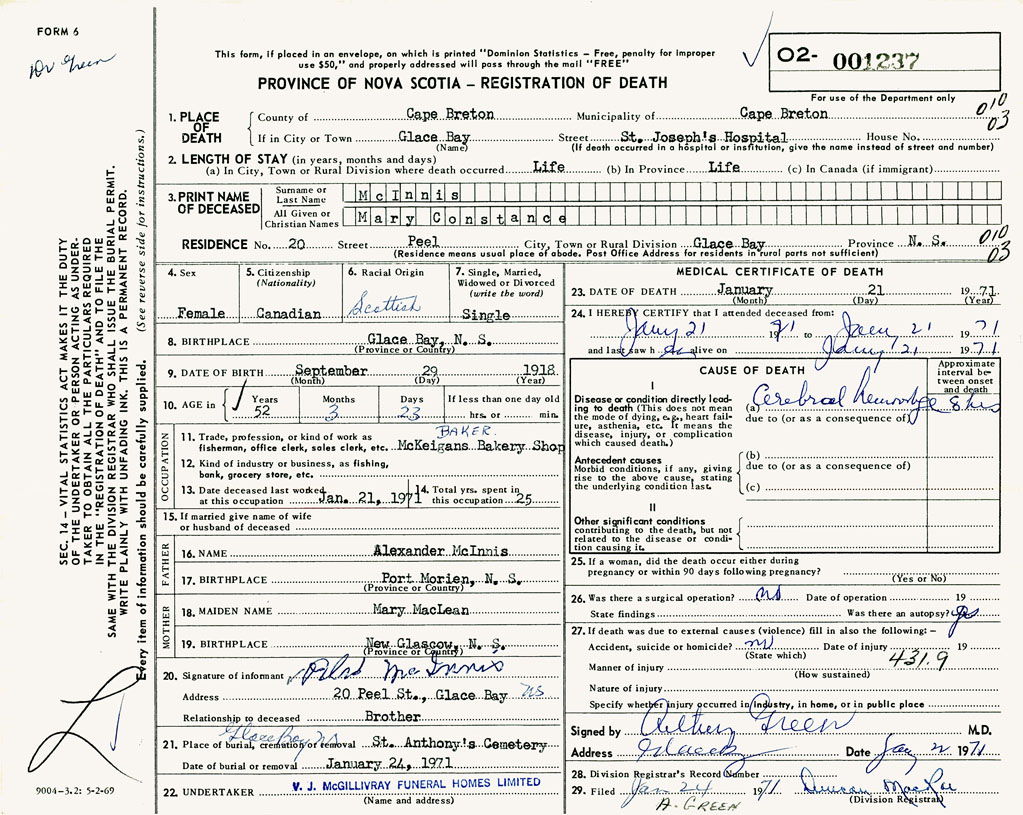 FORM 6
Dr Green
This form, if placed in an envelope, on which is printed "Dominion Statistics – Free, penalty for improper
use $50," and properly addressed will pass through the mail "FREE"
PROVINCE OF NOVA SCOTIA – REGISTRATION OF DEATH
02- 001237
For use of the Department only
010
03
1. PLACE OF DEATH
County of Cape Breton Municipality of Cape Breton
If in City or Town Glace Bay Street St. Joseph's Hospital House No.
(Name) (If death occurred in a hospital or institution, give the name instead of street and number)
2. LENGTH OF STAY (in years, months and days)
(a) In City, Town or Rural Division where death occurred Life (b) In Province Life (c) In Canada (if immigrant)
3. PRINT NAME OF DECEASED
Surname or Last Name McInnis
All Given or Christian Names Mary Constance
RESIDENCE No. 20 Street Peel City, Town or Rural Division Glace Bay Province N. S.
(Residence means usual place of abode. Post Office Address for residents in rural parts not sufficient)
010
03
4. Sex
Female
5. Citizenship
(Nationality)
Canadian
6. Racial Origin
Scottish
7. Single, Married,
Widowed or Divorced
(write the word)
Single
8. BIRTHPLACE Glace Bay, N. S.
(Province or Country)
9. DATE OF BIRTH September 29 1918
(Month) (Day) (Year)
10. AGE in
Years Months Days If less than one day old
52 3 23 hrs. or min.
OCCUPATION
BAKER.
11. Trade, profession, or kind of work as
fisherman, office clerk, sales clerk, etc. McKeigans Bakery Shop
12. Kind of industry or business, as fishing,
bank, grocery store, etc.
13. Date deceased last worked
at this occupation Jan. 21, 1971
14. Total yrs. spent in
this occupation 25
15. If married give name of wife
or husband of deceased
FATHER
16. NAME Alexander McInnis
17. BIRTHPLACE Port Morien, N. S.
(Province or Country)
MOTHER
18. MAIDEN NAME Mary MacLean
19. BIRTHPLACE New Glascow, N. S.
(Province or Country)
20. Signature of informant McInnis
Address 20 Peel St., Glace Bay NS
Relationship to deceased Brother
Glace Bay NS
21. Place of burial, cremation or removal St. Anthony's Cemetery
Date of burial or removal January 24, 1971
22. UNDERTAKER V. J. McGILLIVRAY FUNERAL HOMES LIMITED
(Name and address)
MEDICAL CERTIFICATE OF DEATH
23. DATE OF DEATH January 21 1971
(Month) (Day) (Year)
24. I HEREBY CERTIFY that I attended deceased from:
Jany 21 1971 to Jany 21 1971
and last saw h alive on Jany 21 1971
CAUSE OF DEATH
Approximate
interval be-
tween onset
and death
I
Disease or condition directly lead-
ing to death (This does not
mean the mode of dying, e.g., heart fail-
ure, asthenia, etc. It means the
disease, injury, or complication
which caused death.)
(a) Cerebral Hemorrhage 8 hrs
due to (or as a consequence of)
Antecedent causes
Morbid conditions, if any, giving
rise to the above cause, stating
the underlying condition last.
(b)
due to (or as a consequence of)
(c)
II
Other significant conditions
contributing to the death, but not
related to the disease or condi-
tion causing it.
25. If a woman, did the death occur either during
pregnancy or within 90 days following pregnancy?
(Yes or No)
26. Was there a surgical operation? no Date of operation 19
State findings Was there an autopsy? yes
27. If death was due to external causes (violence) fill in also the following: –
Accident, suicide or homicide? no Date of injury 19
(State which)
431.9
Manner of injury
(How sustained)
Nature of injury
Specify whether injury occurred in industry, in home, or in public place
Signed by Arthur Green M.D.
Address Date 1971
28. Division Registrar's Record Number
29. Filed Jan 24 1971 Duncan MacRae
A. GREEN (Division Registrar)
SEC. 14 – VITAL STATISTICS ACT MAKES IT THE DUTY
OF THE UNDERTAKER OR PERSON ACTING AS UNDER-
TAKER TO OBTAIN ALL THE PARTICULARS REQUIRED
IN THE "REGISTRATION OF DEATH" AND TO FILE THE
SAME WITH THE DIVISION REGISTRAR WHO SHALL ISSUE THE BURIAL PERMIT.
WRITE PLAINLY WITH UNFADING INK. THIS IS A PERMANENT RECORD.
Every item of information should be carefully supplied. (See reverse side for instructions.)
9004-3.2: 5-2-69